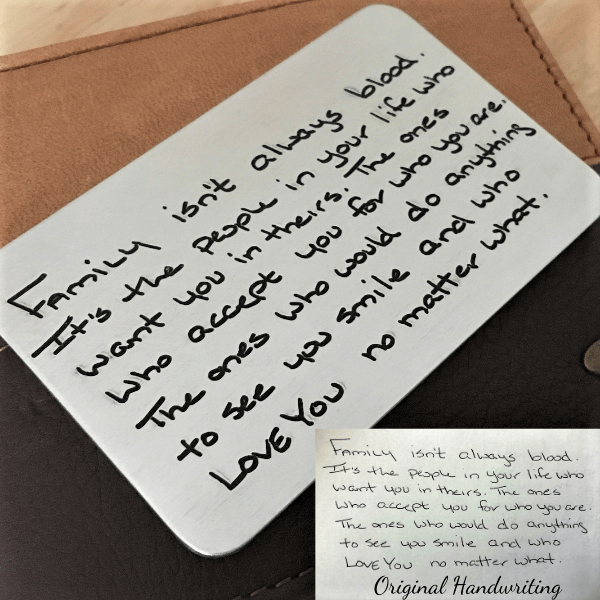 Family isn't always blood.
It's the people in your life who
want you in theirs. The ones
who accept you for who you are.
The ones who would do anything
to see you smile and who
LOVE YOU no matter what.
Family isn't always blood.
It's the people in your life who
want you in theirs. The ones
who accept you for who you are.
The ones who would do anything
to see you smile and who
LOVE YOU no matter what.
Original Handwriting